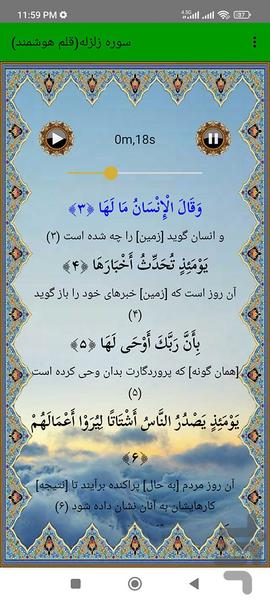 11:59 PM
سوره زلزله(قلم هوشمند)
0m,18s
وَقَالَ الْإِنْسَانُ مَا لَهَا ﴿۳﴾
و انسان گوید [زمین] را چه شده است (۲)
يَوْمَئِذٍ تُحَدِّثُ أَخْبَارَهَا ﴿۴﴾
آن روز است که [زمین] خبرهای خود را باز گوید
(۴)
بِأَنَّ رَبَّكَ أَوْحَى لَهَا ﴿۵﴾
[همان گونه] که پروردگارت بدان وحی کرده است
(۵)
يَوْمَئِذٍ يَصْدُرُ النَّاسُ أَشْتَاتًا لِيُرَوْا أَعْمَالَهُمْ
﴿۶﴾
آن روز مردم [به حال] پراکنده برآیند تا [نتیجه]
کارهایشان به آنان نشان داده شود (۶)